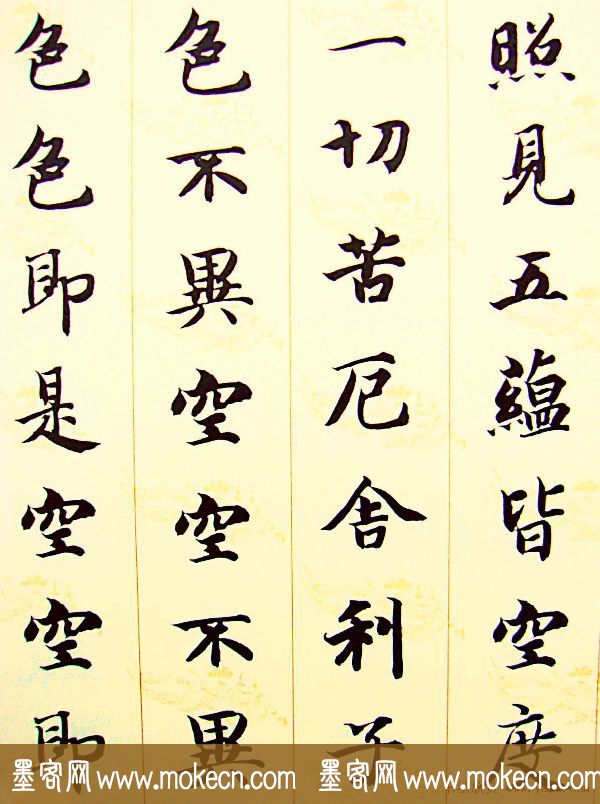 照見五蘊皆空度
一切苦厄舍利子
色不異空空不異
色色即是空空即
墨客网 www.mokecn.com 墨客网 www.mokecn.com